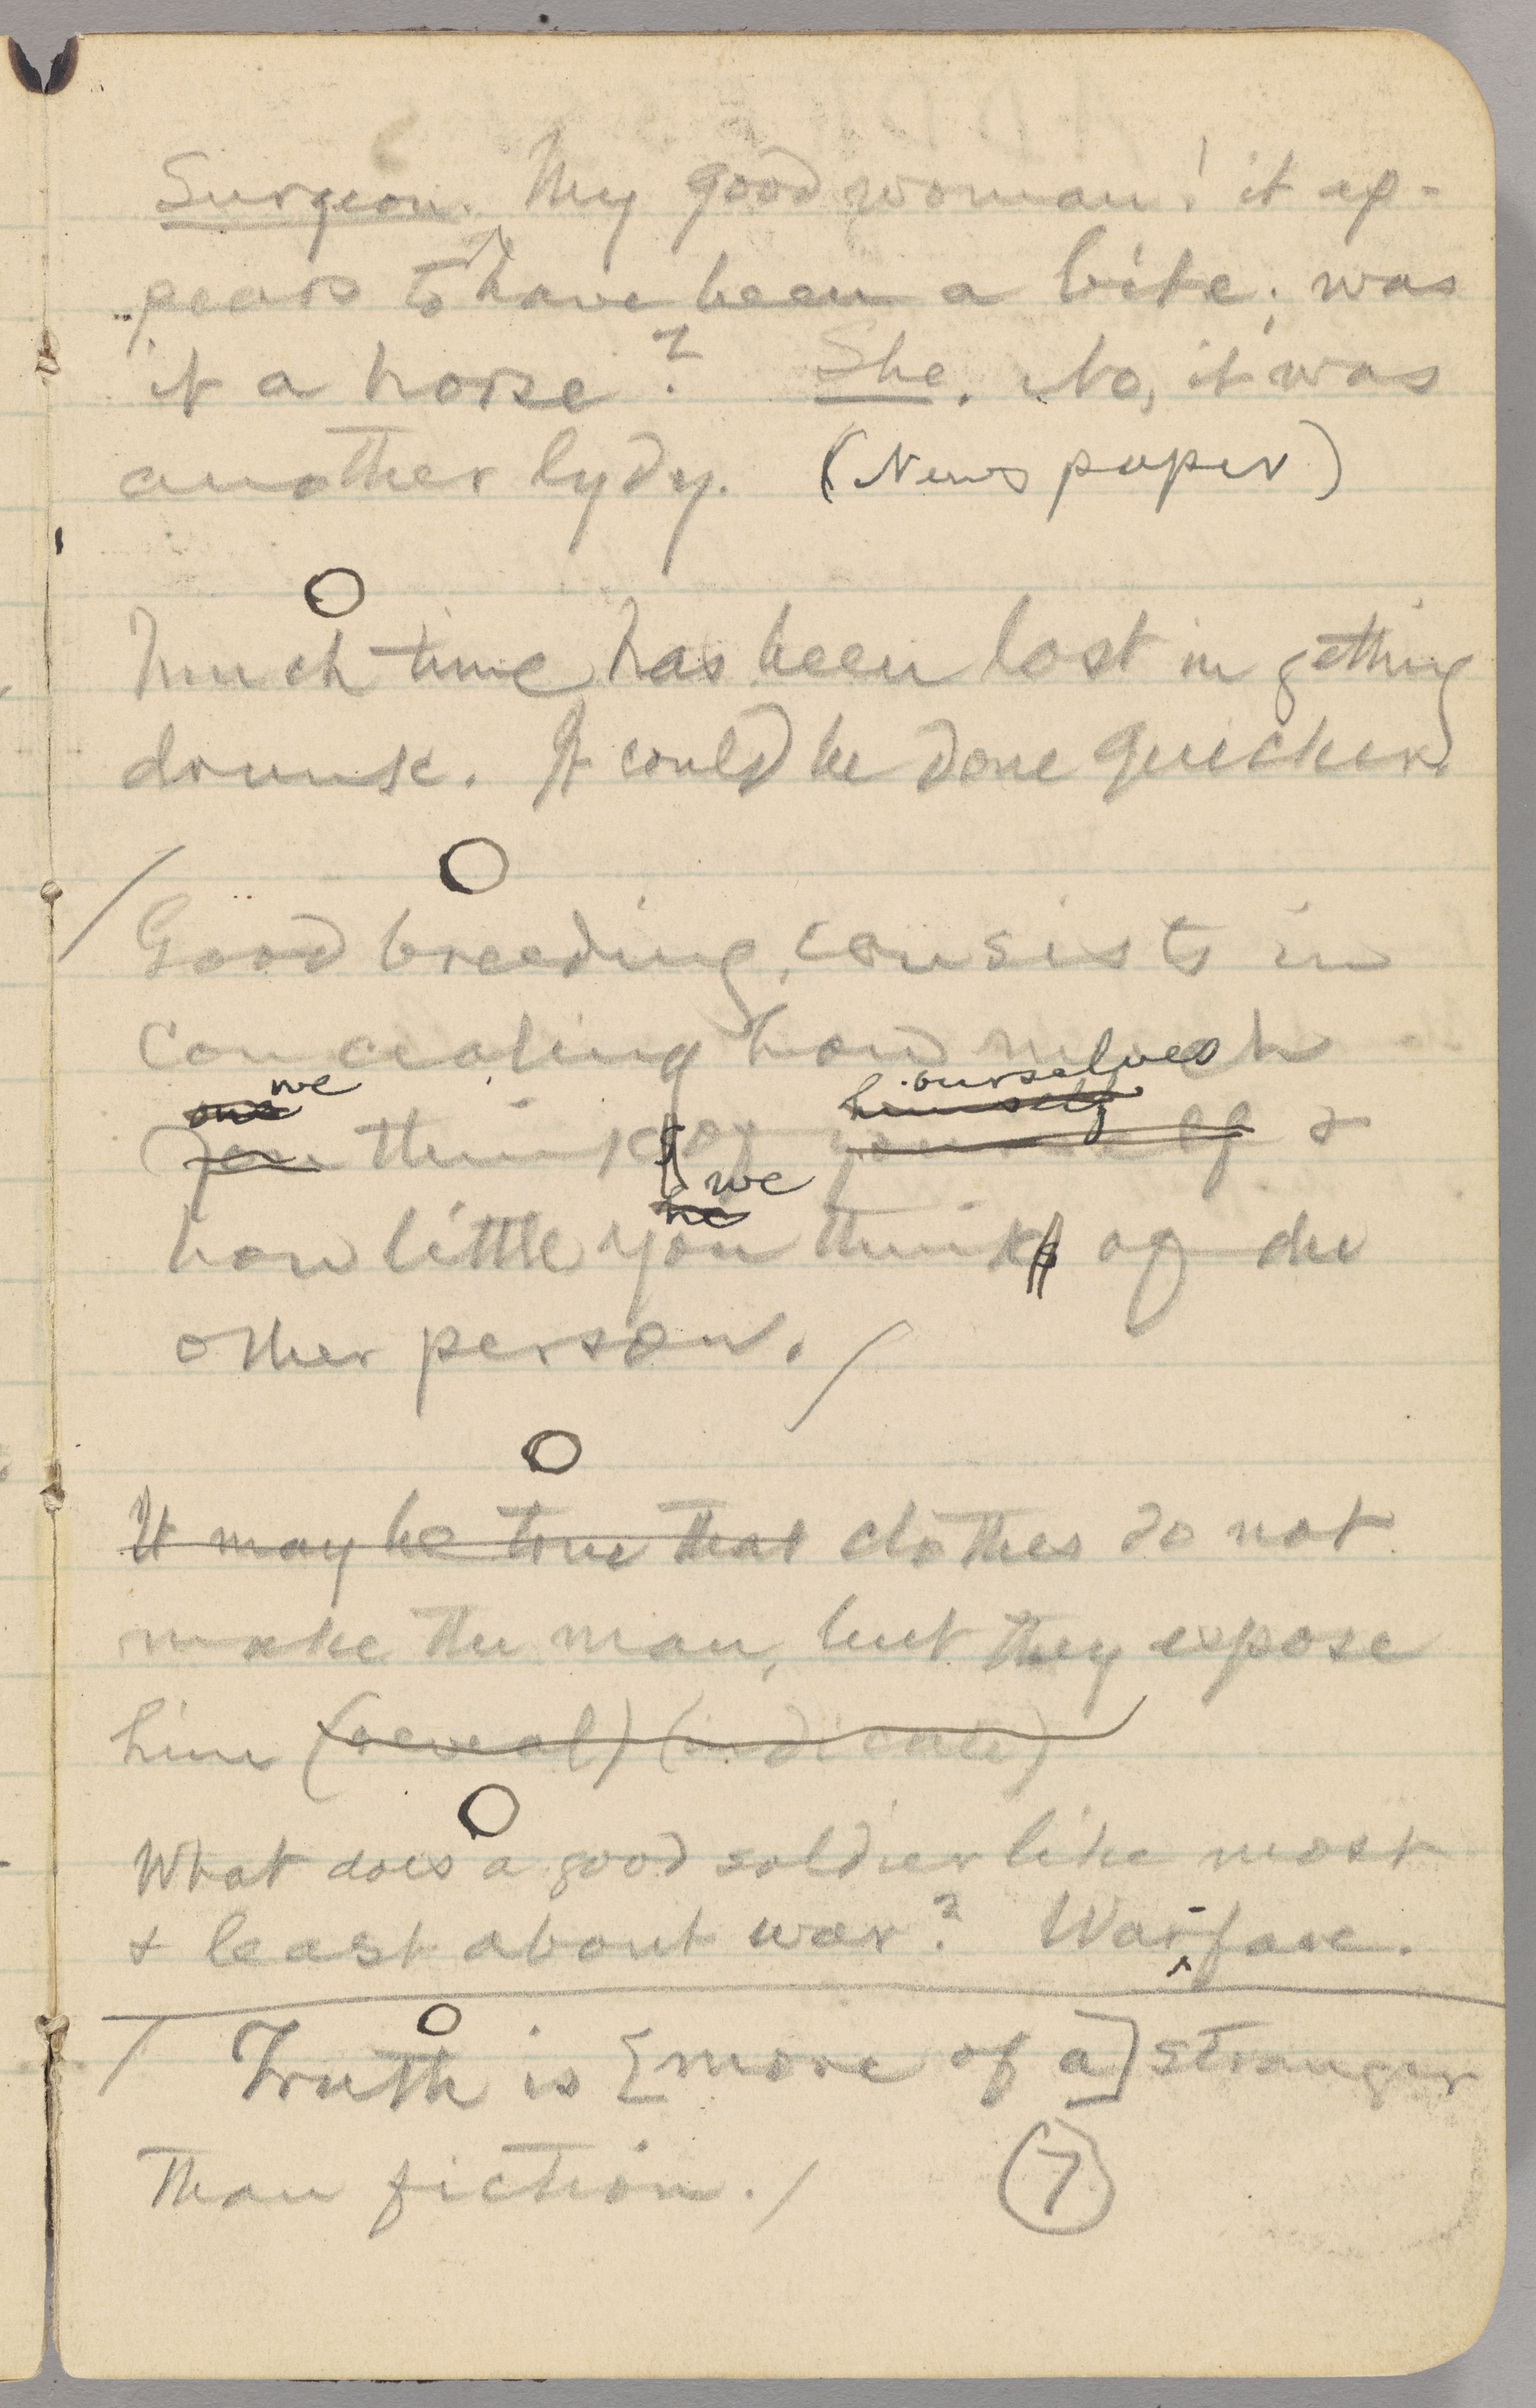 Surgeon. My good woman! it ap-
pears to have been a bite; was
it a horse? She. No, it was
another lydy. (Newspaper)
Much time has been lost in getting
drunk. It could be done quicker.
Good breeding, consists in
concealing how much
one we himself ourselves
you think of yourself &
he we
how little you thinks of the
other person. /
It may be true that clothes do not
make the man, but they expose
him (reveal) (indicate)
What does a good soldier like most
& least about war? War-fare.
/ Truth is [more of a] stranger
than fiction. / 7